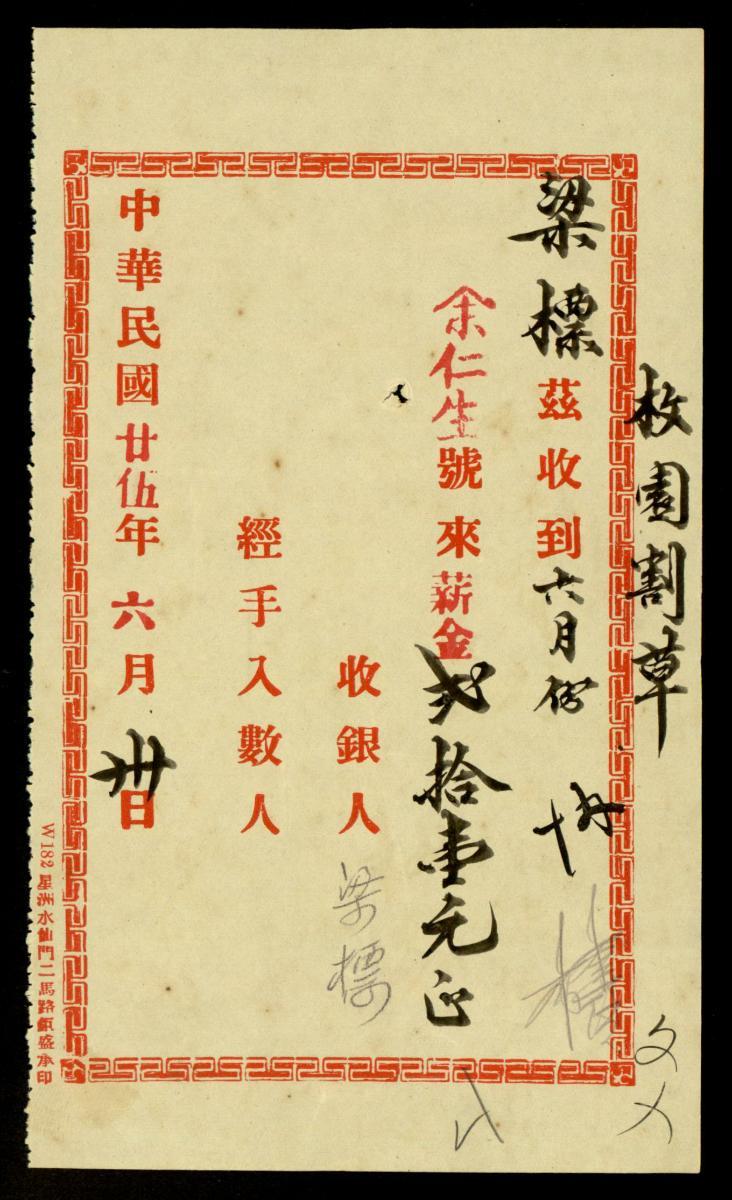 枚園割草
梁標茲收到六月份
余仁生號來薪金弍拾壹元正
收銀人 梁標
經手入數人
中華民國廿伍年六月卅日
W182 星洲水仙門二馬路鉅盛承印